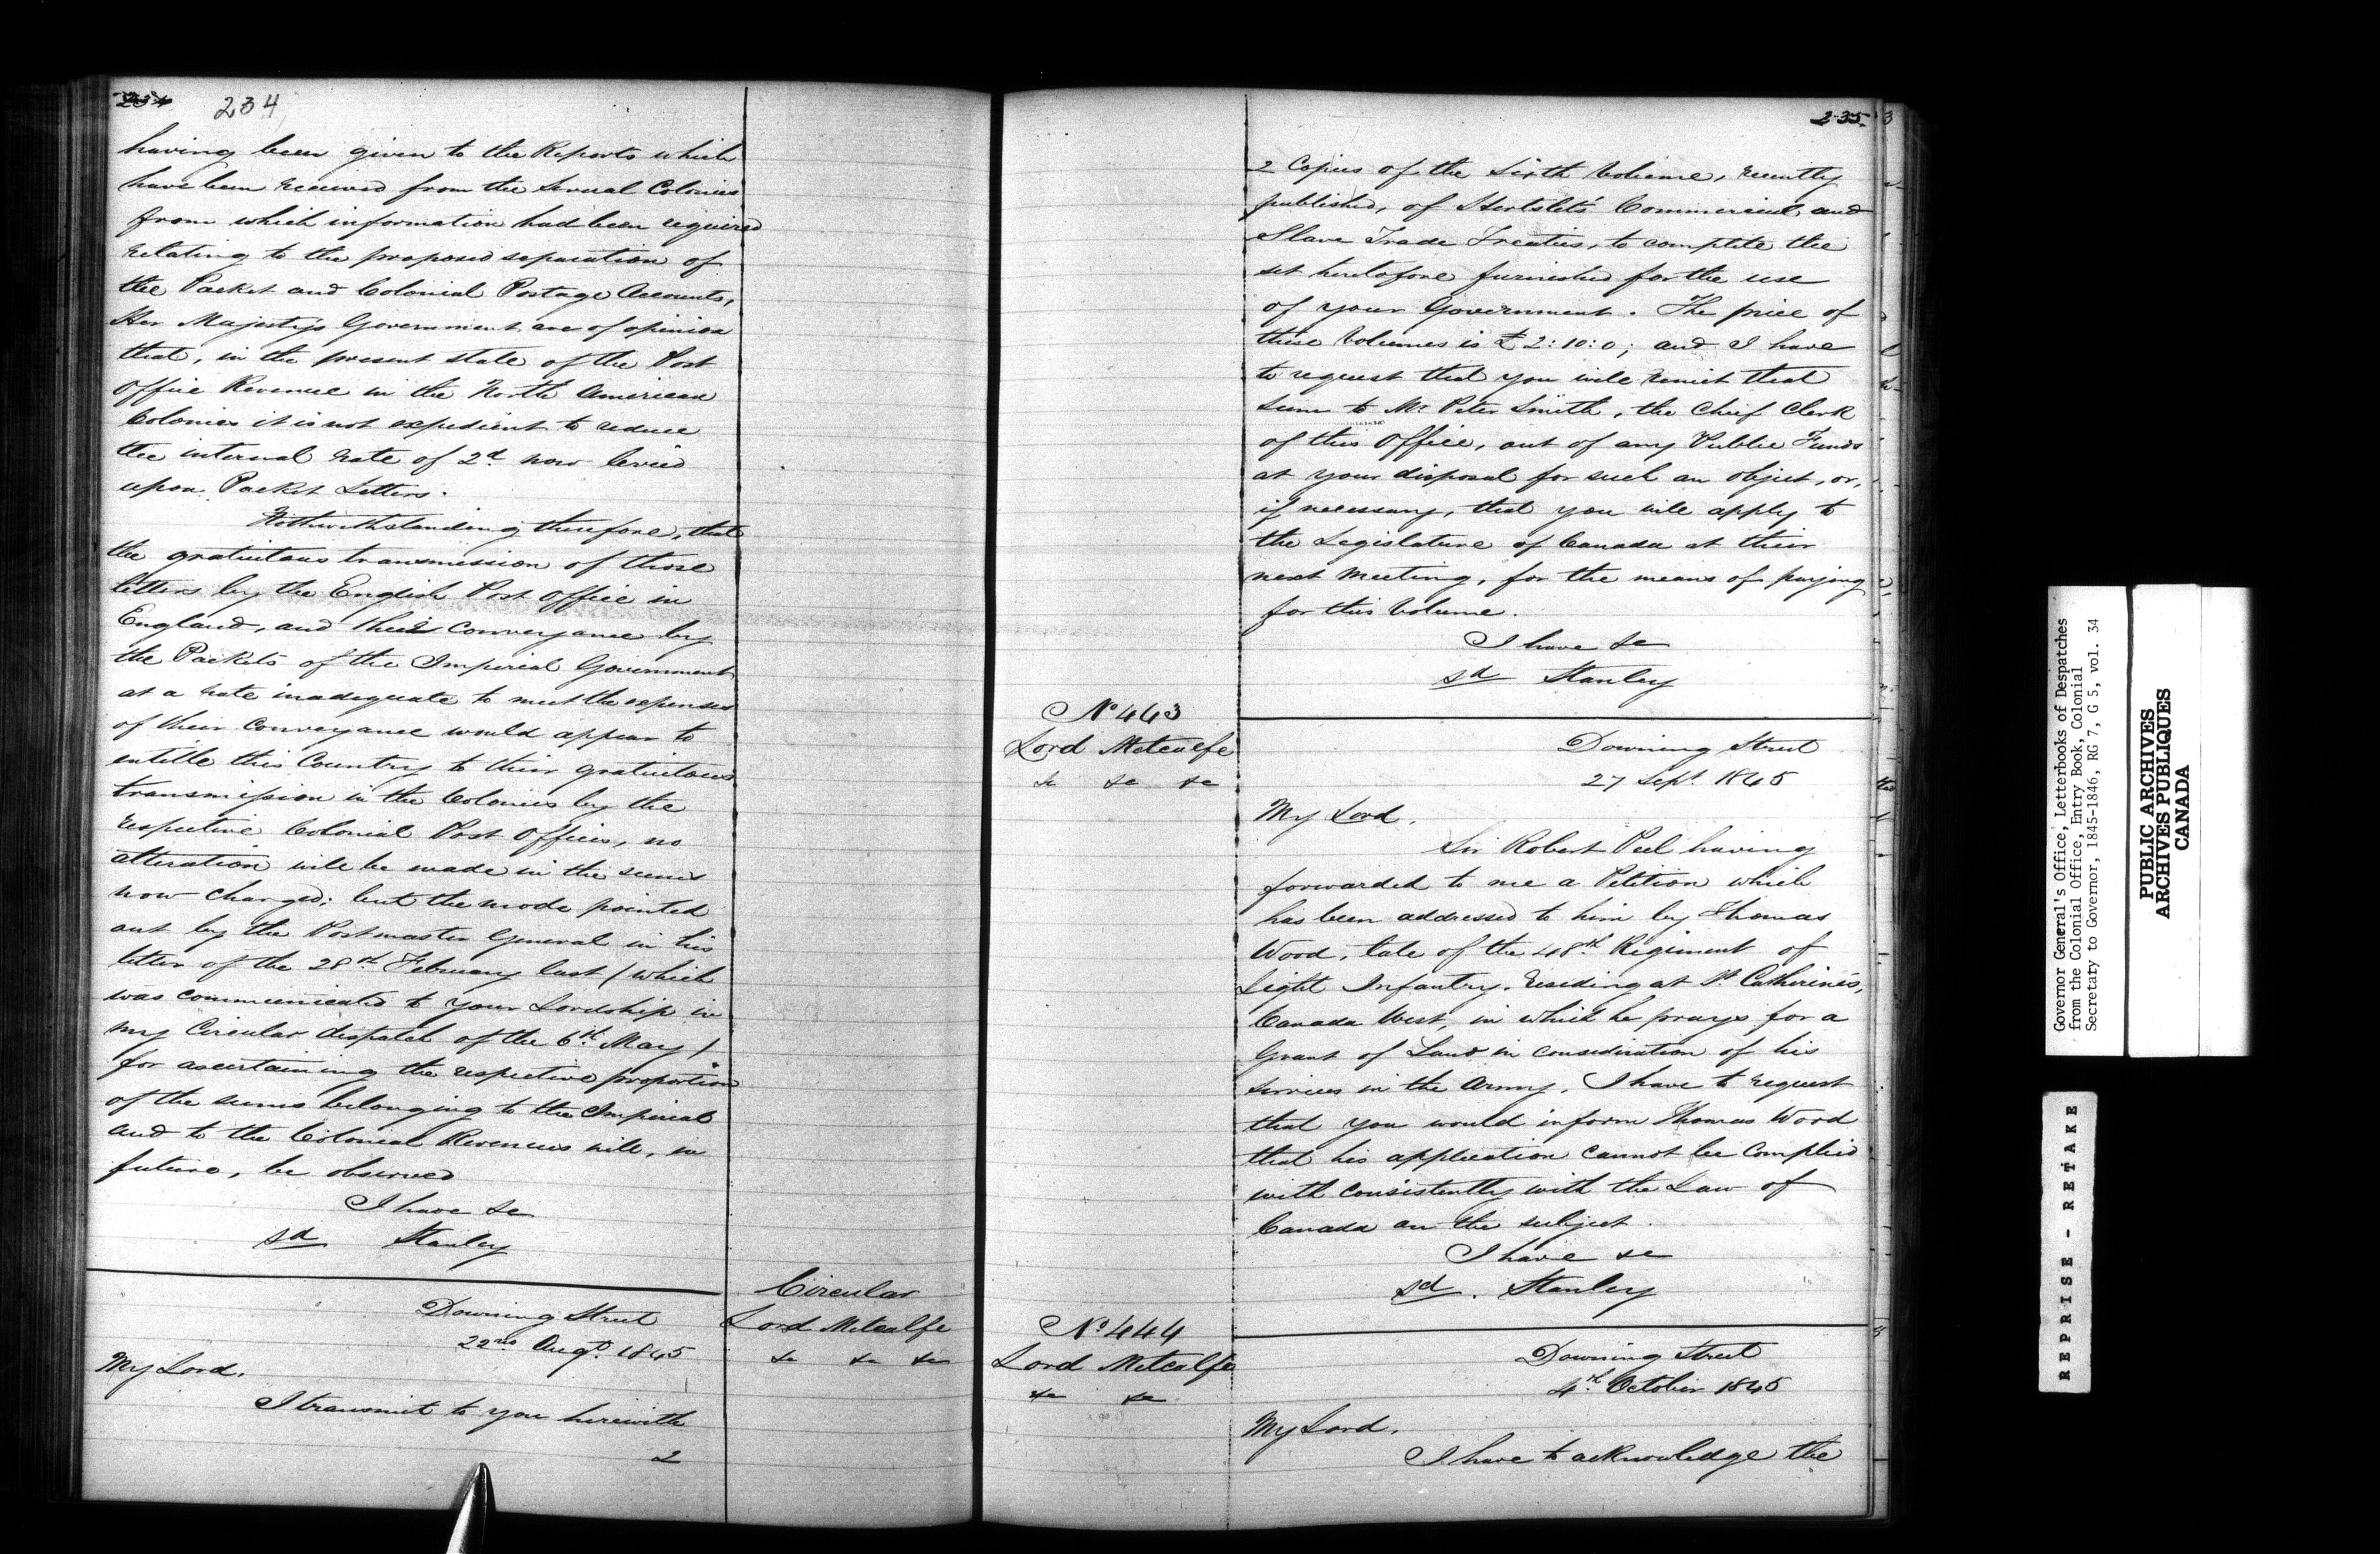 234 234
having been given to the Reports which
have been received from the several Colonies
from which information had been required
relating to the proposed separation of
the Packet and Colonial Postage Accounts,
Her Majesty's Government are of opinion
that, in the present state of the Post
Office Revenue in the North American
Colonies it is not expedient to reduce
the internal rate of 2d now levied
upon Packet Letters.
Nothwithstanding therefore, that
the gratuitous transmission of those
letters by the English Post Office in
England, and their conveyance by
the Packets of the Imperial Government
at a rate inadequate to meet the expenses
of their conveyance would appear to
entitle this Country to their gratuitous
transmission in the Colonies by the
respective Colonial Post Offices, no
alteration will be made in the sums
now charged; but the mode pointed
out by the Postmaster General in his
letter of the 28th February last (which
was communicated to your Lordship in
my Circular dispatch of the 6th May)
for ascertaining the respective proportion
of the sums belonging to the Imperial
and to the Colonial Revenues will, in
future, be observed
I have &c
sd Stanley
Circular
Lord Metcalfe
&c &c &c
Downing Street
22nd Augt. 1845
My Lord.
I transmit to you herewith
2
235.
2 Copies of the Sixth Volume, recently
published, of Hertslet's Commercial and
Slave Trade Treaties, to complete the
set heretofore furnished for the use
of your Government. The price of
these Volumes is £2:10:0; and I have
to request that you will remit that
sum to Mr Peter Smith, the Chief Clerk
of this Office, out of any Public Funds
at your disposal for such an object, or,
if necessary, that you will apply to
the Legislature of Canada at their
next Meeting, for the means of paying
for this Volume.
I have &c
sd Stanley
No 443
Lord Metcalfe
&c &c &c
Downing Street
27 Sept. 1845
My Lord,
Sir Robert Peel having
forwarded to me a Petition which
has been addressed to him by Thomas
Wood, late of the 48th Regiment of
Light Infantry. residing at St. Catherine's,
Canada West, in which he prays for a
Grant of Land in consideration of his
services in the Army. I have to request
that you would inform Thomas Wood
that his application cannot be complied
with consistently with the Law of
Canada on the subject.
I have &c
sd. Stanley
No 444
Lord Metcalfe
&c &c
Downing Street
4th October 1845
My Lord.
I have to acknowledge the
Governor General's Office, Letterbooks of Despatches
from the Colonial Office, Entry Book, Colonial
Secretary to Governor, 1845-1846, RG 7, G 5, vol. 34
PUBLIC ARCHIVES
ARCHIVES PUBLIQUES
CANADA
REPRISE - RETAKE